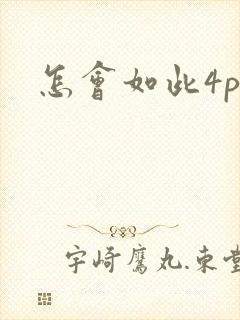 怎會如此4p
宇崎鷹丸.束